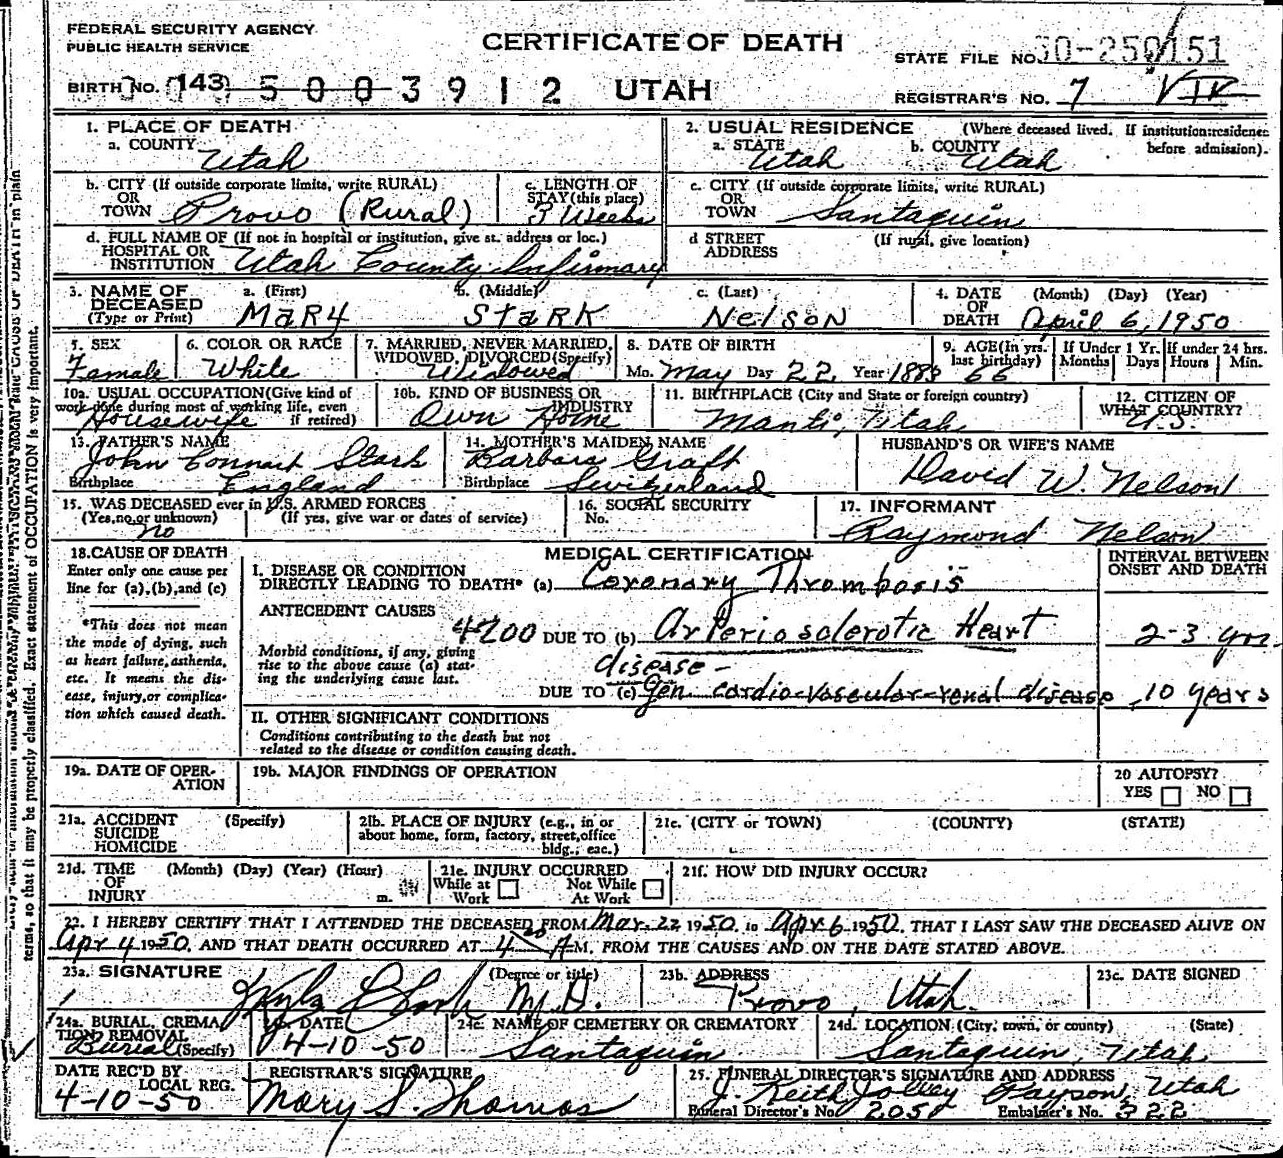 FEDERAL SECURITY AGENCY
PUBLIC HEALTH SERVICE
CERTIFICATE OF DEATH
STATE FILE NO.
BIRTH NO. 143 5003912 UTAH
REGISTRAR'S NO. 7
1. PLACE OF DEATH
a. COUNTY Utah
2. USUAL RESIDENCE (Where deceased lived. If institution: residence before admission).
a. STATE Utah b. COUNTY Utah
b. CITY (If outside corporate limits, write RURAL)
OR
TOWN Provo (Rural)
c. LENGTH OF
STAY (this place)
3 Weeks
c. CITY (If outside corporate limits, write RURAL)
OR
TOWN Santaquin
d. FULL NAME OF (If not in hospital or institution, give st. address or loc.)
HOSPITAL OR
INSTITUTION Utah County Infirmary
d STREET (If rural, give location)
ADDRESS
3. NAME OF DECEASED (Type or Print)
a. (First) b. (Middle) c. (Last)
MARY STARK NelSON
4. DATE OF DEATH (Month) (Day) (Year)
April 6, 1950
5. SEX
Female
6. COLOR OR RACE
White
7. MARRIED, NEVER MARRIED,
WIDOWED, DIVORCED (Specify)
Widowed
8 DATE OF BIRTH
Mo. May Day 22, Year 1883
9. AGE (In yrs. last birthday) 66
If Under 1 Yr. Months Days
If under 24 hrs. Hours Min.
10a. USUAL OCCUPATION (Give kind of
work done during most of working life, even
if retired)
Housewife
10b. KIND OF BUSINESS OR
INDUSTRY
Own Home
11. BIRTHPLACE (City and State or foreign country)
Manti, Utah
12. CITIZEN OF
WHAT COUNTRY?
U.S.
13. FATHER'S NAME
John Stark
Birthplace England
14. MOTHER'S MAIDEN NAME
Barbara Graft
Birthplace Switzerland
HUSBAND'S OR WIFE'S NAME
David W. Nelson
15. WAS DECEASED ever in U.S. ARMED FORCES
(Yes, no, or unknown) (If yes, give war or dates of service)
no
16. SOCIAL SECURITY
No.
17. INFORMANT
Raymond Nelson
18. CAUSE OF DEATH
Enter only one cause per
line for (a), (b), and (c)
*This does not mean
the mode of dying, such
as heart failure, asthenia,
etc. It means the dis-
ease, injury, or complica-
tion which caused death.
MEDICAL CERTIFICATION
I. DISEASE OR CONDITION
DIRECTLY LEADING TO DEATH* (a) Coronary Thrombosis
ANTECEDENT CAUSES
4200 DUE TO (b) Arteriosclerotic Heart
disease -
Morbid conditions, if any, giving
rise to the above cause (a) stat-
ing the underlying cause last.
DUE TO (c) Gen. cardio-vascular-renal disease
INTERVAL BETWEEN
ONSET AND DEATH
2-3 yrs.
10 years
II. OTHER SIGNIFICANT CONDITIONS
Conditions contributing to the death but not
related to the disease or condition causing death.
19a. DATE OF OPER-
ATION
19b. MAJOR FINDINGS OF OPERATION
20 AUTOPSY?
YES NO
21a. ACCIDENT (Specify)
SUICIDE
HOMICIDE
21b. PLACE OF INJURY (e.g., in or
about home, form, factory, street, office
bldg., eac.)
21c. (CITY or TOWN) (COUNTY) (STATE)
21d. TIME (Month) (Day) (Year) (Hour)
OF
INJURY m.
21e. INJURY OCCURRED
While at Work Not While At Work
21f. HOW DID INJURY OCCUR?
22. I HEREBY CERTIFY THAT I ATTENDED THE DECEASED FROM Mar. 22 1950, to Apr 6 1950, THAT I LAST SAW THE DECEASED ALIVE ON
Apr 4 1950, AND THAT DEATH OCCURRED AT 4 A M. FROM THE CAUSES AND ON THE DATE STATED ABOVE.
23a. SIGNATURE (Degree or title)
Clark M.D.
23b. ADDRESS
Provo, Utah.
23c. DATE SIGNED
24a. BURIAL, CREMA
TION REMOVAL
(Specify)
Burial
DATE
4-10-50
24c. NAME OF CEMETERY OR CREMATORY
Santaquin
24d. LOCATION (City, town, or county) (State)
Santaquin, Utah
DATE REC'D BY
LOCAL REG.
4-10-50
REGISTRAR'S SIGNATURE
Mary S. Thomas
25. FUNERAL DIRECTOR'S SIGNATURE AND ADDRESS
J. Keith Jolley Payson, Utah
Funeral Director's No. 205 Embalmer's No. 322
terms, so that it may be properly classified. Exact statement of OCCUPATION is very important.